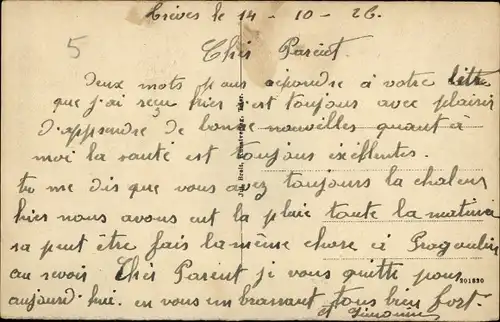 Trèves le 14 - 10 - 26.
5
Cher Parent.
Deux mots pour répondre à votre lettre
que j'ai reçu hier est toujours avec plaisir
d'apprendre de bonne nouvelles quant à
moi la santé est toujours exellentes.
tu me dis que vous avez toujours la chaleur
hier nous avons eut la pluie toute la matinée
sa peut être fais la même chose à
au revoir Cher Parent je vous quitte pour
aujourd'hui. en vous embrassant tous bien fort.
201830